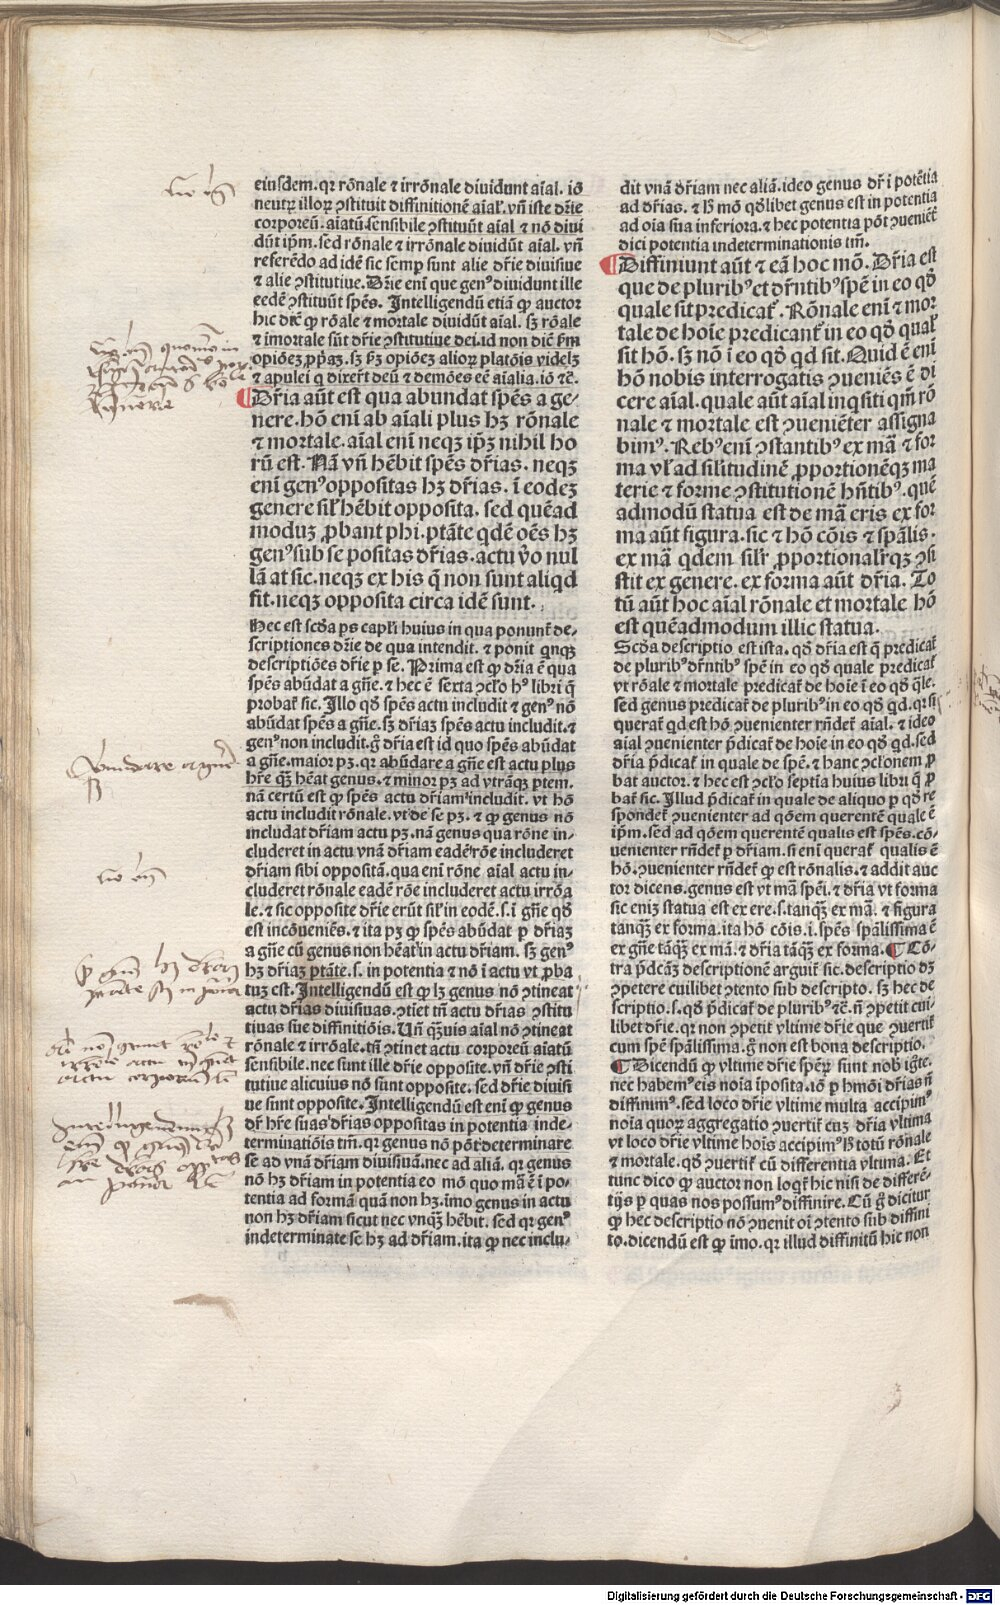 eiusdem. qꝛ rõnale ⁊ irrõnale diuidunt aĩal. iõ
neutꝝ illoꝝ ꝯstituit diffinitionẽ aĩal̃. vñ iste dr̃ie
corporeũ. aĩatũ sensibile ꝯstituũt aĩal ⁊ nõ diui
dũt ip̃m. sed rõnale ⁊ irrõnale diuidũt aĩal. vñ
referẽdo ad idẽ sic semp sunt alie dr̃ie diuisiue
⁊ alie ꝯstitutiue. Dr̃ie eni᷈ que genꝰ diuidunt ille
eedẽ ꝯstituũt spẽs. Intelligendũ etiã ꝙ auctor
hic dic̃ ꝙ rõale ⁊ mortale diuidũt aĩal. sꝫ rõale
⁊ imortale sũt dr̃ie ꝯstitutiue dei. id non diẽ ẜm
opiõeꝫ pp̃aꝫ. sꝫ ẜꝫ opiõeꝫ alioꝝ platõis videlꝫ
⁊ apulei q dixer̃t deũ ⁊ demões eẽ aĩalia. iõ ⁊c̃.
¶ Dr̃ia aũt est qua abundat spẽs a ge-
nere. hõ eni᷈ ab aĩali plus hꝫ rõnale
⁊ mortale. aĩal eni᷈ neqꝫ ip̃ꝫ nihil ho
rũ est. Nã vñ hẽbit spẽs dr̃ias. neqꝫ
eni᷈ genꝰ oppositas hꝫ dr̃ias. ĩ eodeꝫ
genere sil̃ hẽbit opposita. sed quẽad
moduꝫ ꝓbant phi. ptãte qdẽ oẽs hꝫ
genꝰ sub se positas dr̃ias. actu ṽo nul
lã at sic. neqꝫ ex his q̃ non sunt aliqd
fit. neqꝫ opposita circa idẽ sunt.
Hec est scõa ps capl̃i huius in qua ponunt᷑ de-
scriptiones dr̃ie de qua intendit. ⁊ ponit qnqꝫ
descriptiões dr̃ie p se. Prima est ꝙ dr̃ia ẽ qua
spẽs abũdat a gñe. ⁊ hec ẽ sexta ꝯcl̃o hꝰ libri q̃
probat᷑ sic. Illo qð spẽs actu includit ⁊ genꝰ nõ
abũdat spẽs a gñe. sꝫ dr̃iaꝫ spẽs actu includit. ⁊
genꝰ non includit. g̃ dr̃ia est id quo spẽs abũdat
a gñe. maior pꝫ. qꝛ abũdare a gñe est actu plus
hr̃e qꝫ̃ hẽat genus. ⁊ minor pꝫ ad vtrãqꝫ ptem.
nã certũ est ꝙ spẽs actu dr̃iam includit. vt hõ
actu includit rõnale. vt de se pꝫ. ⁊ ꝙ genus nõ
includat dr̃iam actu pꝫ. nã genus qua rõne in-
cluderet in actu vnã dr̃iam eadẽ rõe includeret
dr̃iam sibi oppositã. qua eni᷈ rõne aĩal actu in-
cluderet rõnale eadẽ rõe includeret actu irrõa
le. ⁊ sic opposite dr̃ie erũt sil̃ in eodẽ. s. ĩ gñe qð
est incõueniẽs. ⁊ ita pꝫ ꝙ spẽs abũdat p dr̃iaꝫ
a gñe cũ genus non hẽat in actu dr̃iam. sꝫ genꝰ
hꝫ dr̃iaꝫ ptãte. s. in potentia ⁊ nõ ĩ actu vt ꝓba
tuꝫ est. Intelligendũ est ꝙ lꝫ genus nõ ꝯtineat
actu dr̃ias diuisiuas. ꝯtiet tñ actu dr̃ias ꝯstitu
tiuas sue diffinitiõis. Uñ qꝫ̃uis aĩal nõ ꝯtineat
rõnale ⁊ irrõale. tñ ꝯtinet actu corporeũ aĩatũ
sensibile. nec sunt ille dr̃ie opposite. vñ dr̃ie ꝯsti
tutiue alicuius nõ sunt opposite. sed dr̃ie diuisi
ue sunt opposite. Intelligendũ est eni᷈ ꝙ genus
dr̃ hr̃e suas dr̃ias oppositas in potentia inde-
terminatiõis tm̃. qꝛ genus nõ põt determinare
se ad vnã dr̃iam diuisiuã. nec ad aliã. qꝛ genus
nõ hꝫ dr̃iam in potentia eo mõ quo mã ẽ ĩ po-
tentia ad formã quã non hꝫ. imo genus in actu
non hꝫ dr̃iam sicut nec vnqꝫ̃ hẽbit. sed qꝛ genꝰ
indeterminate se hꝫ ad dr̃iam. ita ꝙ nec inclu-
dit vnã dr̃iam nec aliã. ideo genus dr̃ ĩ potẽtia
ad dr̃ias. ⁊ ꝉ mõ qðlibet genus est in potentia
ad oĩa sua inferiora. ⁊ hec potentia põt ꝯueniẽt᷑
dici potentia indeterminationis tm̃.
¶ Diffiniunt aũt ⁊ eã hoc mõ. Dr̃ia est
que de pluribꝰ et dr̃ntibꝰ spẽ in eo qð
quale sit predicat᷑. Rõnale eni᷈ ⁊ mor
tale de hoĩe predicant᷑ in eo qð qual̃
sit hõ. sꝫ nõ ĩ eo qð qd sit. Quid ẽ eni᷈
hõ nobis interrogatis ꝯueniẽs ẽ di
cere aĩal. quale aũt aĩal inqsiti qm̃ rõ
nale ⁊ mortale est ꝯueniẽter assigna
bimꝰ. Rebꝰ eni᷈ ꝯstantibꝰ ex mã ⁊ for
ma vl̃ ad sil̃itudinẽ ꝓportionẽqꝫ ma
terie ⁊ forme ꝯstitutionẽ hñtibꝰ. quẽ
admodũ statua est de mã eris ex for
ma aũt figura. sic ⁊ hõ cõis ⁊ spãlis.
ex mã qdem sil̃r ꝓportional̃rqꝫ ꝯsi
stit ex genere. ex forma aũt dr̃ia. To
tũ aũt hoc aĩal rõnale et mortale hõ
est quẽadmodum illic statua.
Scõa descriptio est ista. qð dr̃ia est q̃ predicat᷑
de pluribꝰ dr̃ntibꝰ spẽ in eo qð quale predicat᷑
vt rõale ⁊ mortale predicat᷑ de hoie ĩ eo qð q̃le.
sed genus predicat᷑ de pluribꝰ in eo qð qd. qꝛ si
querat᷑ qd est hõ ꝯuenienter rñdet᷑ aĩal. ⁊ ideo
aĩal ꝯuenienter p̃dicat᷑ de hoie in eo qð qd. sed
dr̃ia p̃dicat᷑ in quale de spẽ. ⁊ hanc ꝯcl̃onem ꝓ
bat auctor. ⁊ hec est ꝯcl̃o septĩa huius libri q̃ ꝓ
bat᷑ sic. Illud p̃dicat᷑ in quale de aliquo p qð re
spondet᷑ ꝯuenienter ad qõem querentẽ quale ẽ
ip̃m. sed ad qõem querentẽ qualis est spẽs. cõ-
uenienter rñdet᷑ p dr̃iam. si eni᷈ querat᷑ qualis ẽ
hõ. ꝯuenienter rñdet᷑ ꝙ est rõnalis. ⁊ addit auc
tor dicens. genus est vt mã spẽi. ⁊ dr̃ia vt forma
sic eniꝫ statua est ex ere. s. tanqꝫ̃ ex mã. ⁊ figura
tanqꝫ̃ ex forma. ita hõ cõis. i. spẽs spãlissima ẽ
ex gñe tãqꝫ̃ ex mã. ⁊ dr̃ia tãqꝫ̃ ex forma. ¶ Cõ-
tra p̃dcãꝫ descriptionẽ arguit᷑ sic. descriptio dꝫ
ꝯpetere cuilibet ꝯtento sub descripto. sꝫ hec de
scriptio. s. qð p̃dicat᷑ de pluribꝰ ⁊c̃. ñ ꝯpetit cui-
libet dr̃ie. qꝛ non ꝯpetit vltime dr̃ie que ꝯuertit᷑
cum spẽ spãlissima. g̃ non est bona descriptio.
¶ Dicendũ ꝙ vltime dr̃ie spẽꝝ sunt nob̃ ig̃te.
nec habemꝰ eis noĩa ĩposita. iõ ꝑ hmõi dr̃ias ñ
diffinimꝰ. sed loco dr̃ie vltime multa accipimꝰ
noĩa quoꝝ aggregatio ꝯuertit᷑ cuꝫ dr̃ia vltima
vt loco dr̃ie vltime hoĩs accipimꝰ ꝉ totũ rõnale
⁊ mortale. qð ꝯuertit᷑ cũ differentia vltima. Et
tunc dico ꝙ auctor non loqt᷑ hic nisi de differẽ-
tijs p quas nos possumꝰ diffinire. Cũ g̃ dicitur
ꝙ hec descriptio nõ ꝯuenit oĩ ꝯtento sub diffini
to. dicendũ est ꝙ ĩmo. qꝛ illud diffinitũ hic non
Digitalisierung gefördert durch die Deutsche Forschungsgemeinschaft - DFG